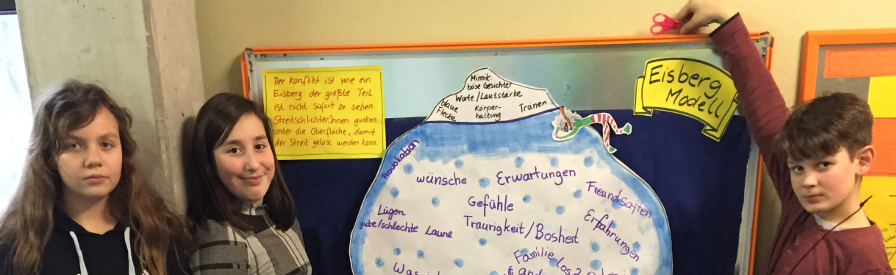 Der Konflikt ist wie ein
Eisberg der größte Teil
ist nicht sofort zu sehen.
Streitschlichter:innen gucken
unter die Oberfläche, damit
der Streit gelöst werden kann.
Mimik:
böse Gesichter
Worte/Lautstärke
blaue
Flecke
Körper-
haltung
Tränen
Eisberg
Modell
Provokation
wünsche
Erwartungen
Freundschaften
Gefühle
Lügen
gute/schlechte Laune
Traurigkeit/Bosheit
Erfahrungen
Familie